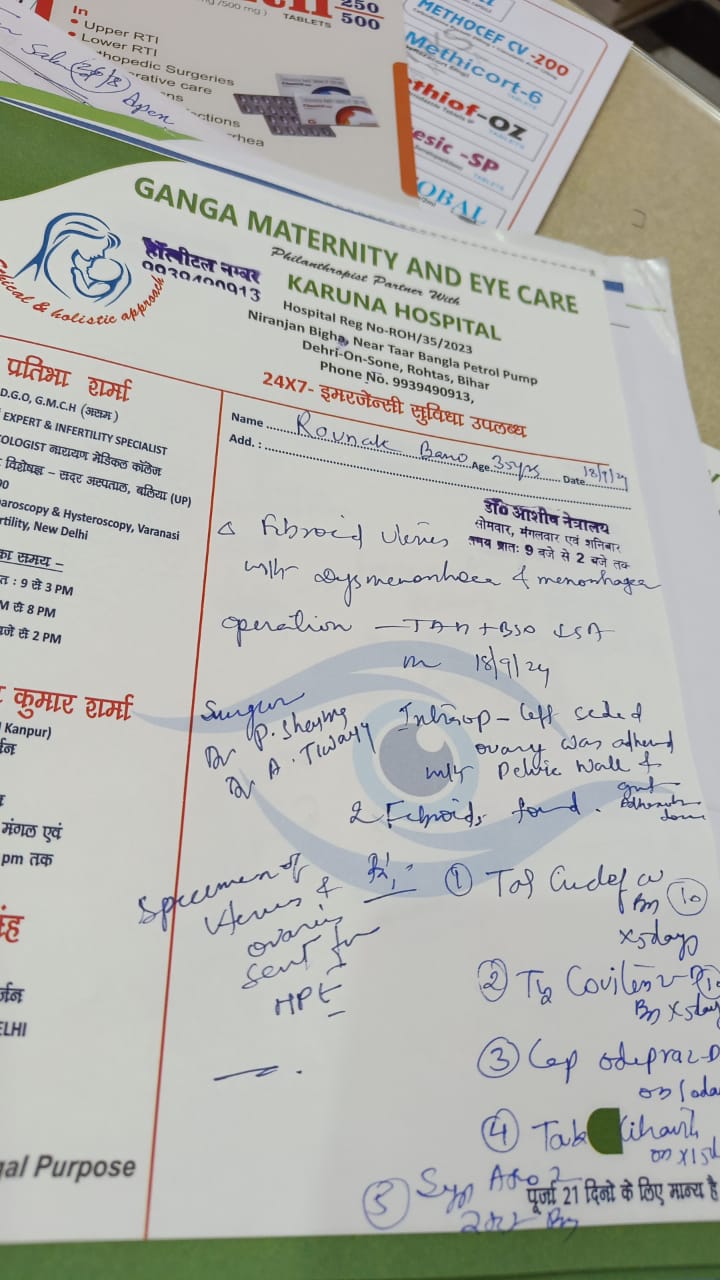 250
500
/500 mg )
TABLETS
In
• Upper RTI
• Lower RTI
thopedic Surgeries
rative care
ns
ctions
rhea
Apon
METHOCEF CV -200
Methicort-6
TABLETS
thiof-OZ
TABLETS
esic -SP
TABLETS
OBAL
GANGA MATERNITY AND EYE CARE
Philanthropist Partner With
KARUNA HOSPITAL
Hospital Reg No-ROH/35/2023
Niranjan Bigha, Near Taar Bangla Petrol Pump
Dehri-On-Sone, Rohtas, Bihar
Phone No. 9939490913,
24X7- इमरजेन्सी सुविधा उपलब्ध
हॉस्पीटल नम्बर
9939490913
ethical & holistic approach
प्रतिभा शर्मा
D.G.O, G.M.C.H (असम)
EXPERT & INFERTILITY SPECIALIST
COLOGIST नारायण मेडिकल कॉलेज
विशेषज्ञ – सदर अस्पताल, बलिया (UP)
00
aroscopy & Hysteroscopy, Varanasi
rtility, New Delhi
का समय –
त : 9 से 3 PM
M से 8 PM
बजे से 2 PM
कुमार शर्मा
Kanpur)
र्जन
मंगल एवं
pm तक
र्जन
ELHI
gal Purpose
Name Rounak Bano Age 35yrs Date 18/9/24
Add. :
डॉ० आशीष नेत्रालय
सोमवार, मंगलवार एवं शनिबार
समय प्रातः 9 बजे से 2 बजे तक
Δ Fibroid Uterus
with Dysmenorrhoea & menorrhagea
operation – TAH + BSO
on 18/9/24
Surgeon
Dr P. Sharma
Dr A. Tiwary
Intraop – left sided
ovary was adhered
with Pelvic wall &
gut
2 Fibroids found.
done
Specimen of
Uterus &
ovaries
sent for
HPE
Rx,:-
① Tab
BD 10
x5days
②
BD x5day
③ Cap odepraz-D
OD
④ Tab
OD x15d
⑤ Syp
2 BD
पूर्जा 21 दिनो के लिए मान्य है